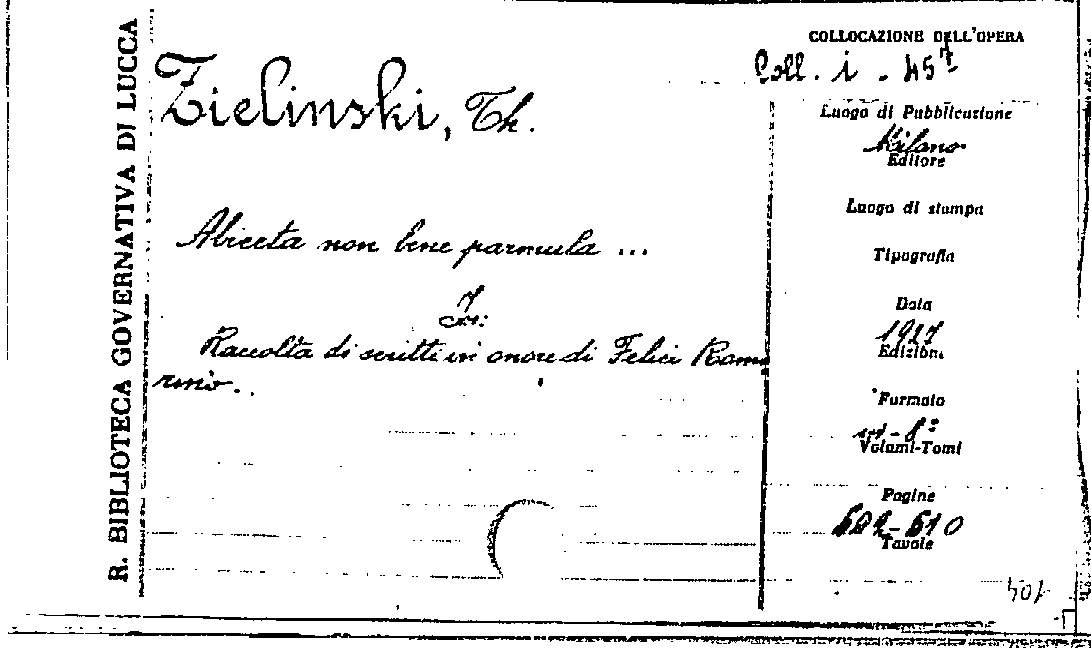 R. BIBLIOTECA GOVERNATIVA DI LUCCA
Zielinski, Th.
Abiecta non bene parmula ...
In:
Raccolta di scritti in onore di Felici Ramo
rino.
COLLOCAZIONE DELL'OPERA
Coll. i. 457
Luogo di Pubblicazione
Milano
Editore
Luogo di stampa
Tipografia
Data
1927
Edizioni
Formato
in-8º
Volumi-Tomi
Pagine
602-610
Tavole